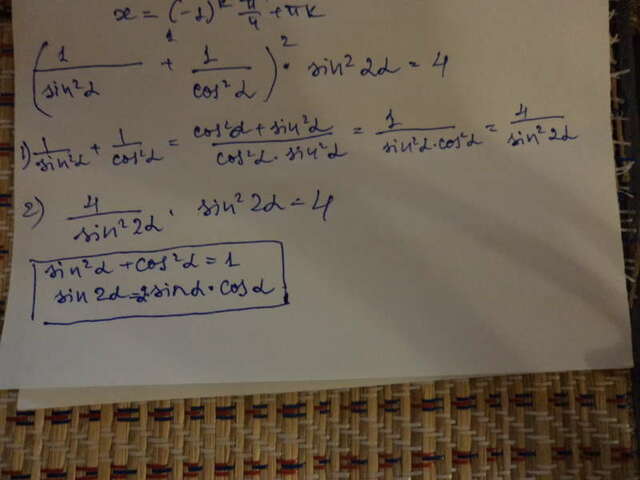 x = (-1)^k π/4 + πk
(1/sin²α + 1/cos²α)² · sin²2α = 4
1) 1/sin²α + 1/cos²α = (cos²α + sin²α)/(cos²α · sin²α) = 1/(sin²α · cos²α) = 4/sin²2α
2) 4/sin²2α · sin²2α = 4
sin²α + cos²α = 1
sin 2α = 2sinα · cosα